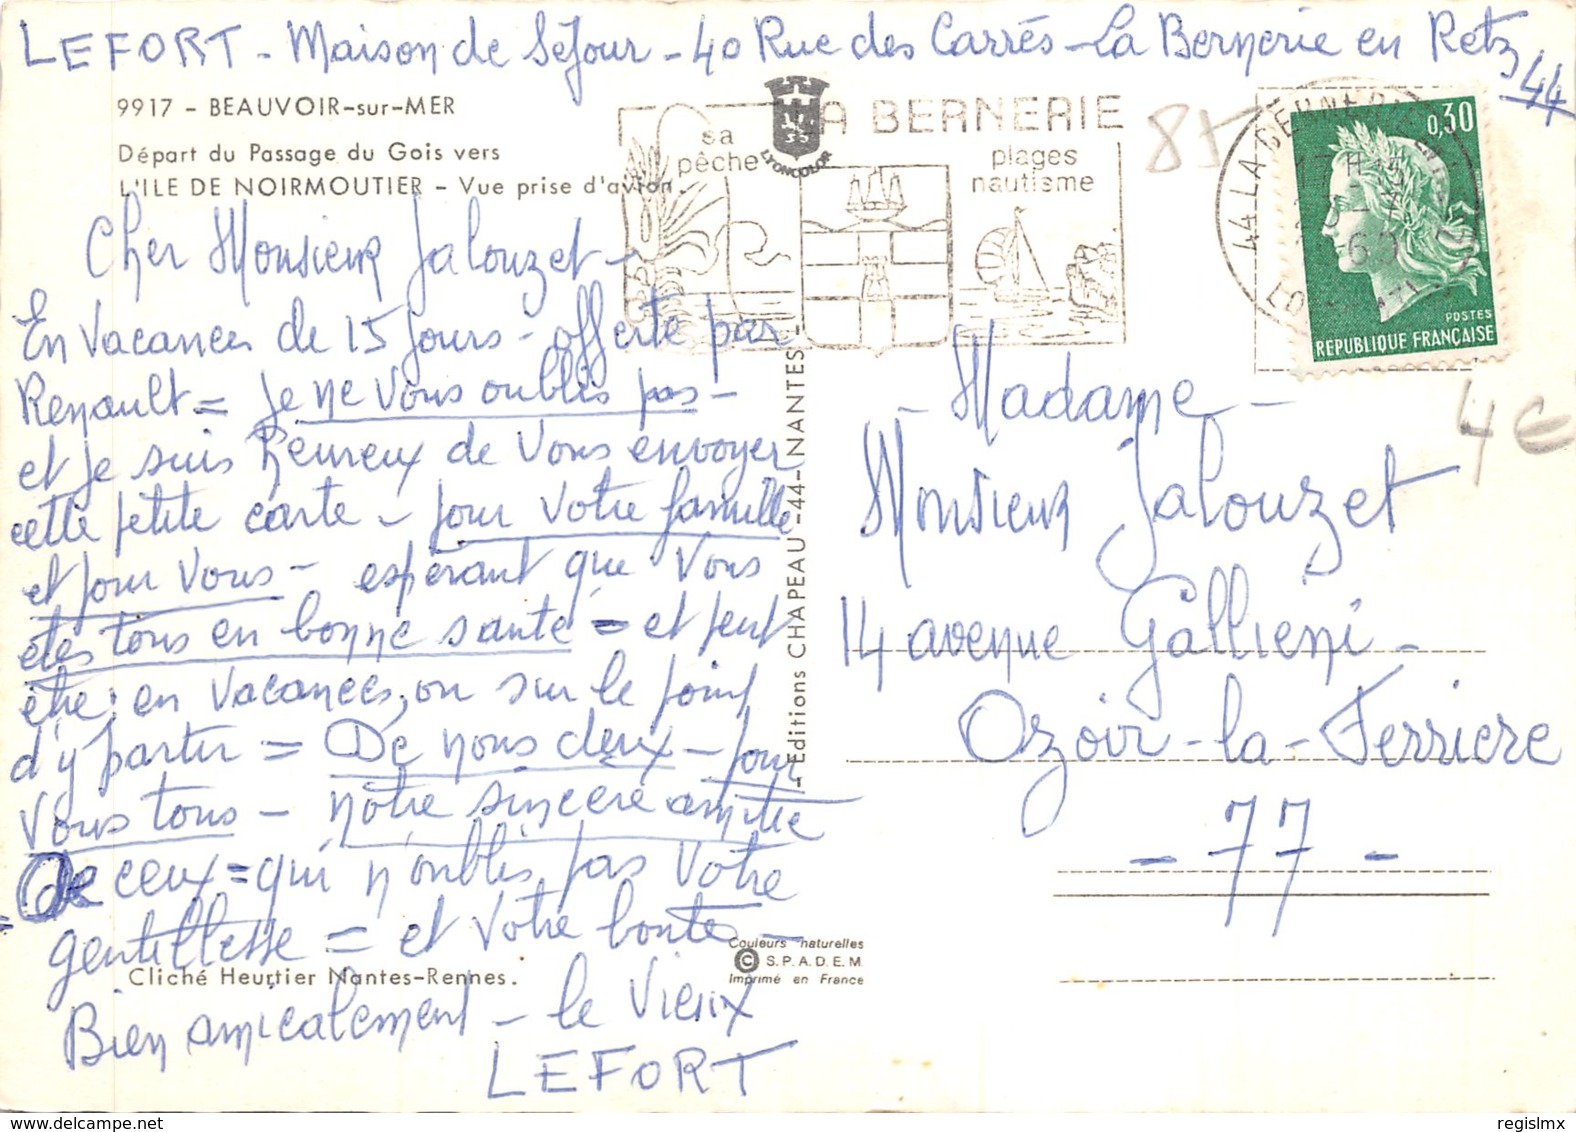 LEFORT - Maison de Séjour - 40 Rue des Carrés - La Bernerie en Retz
44
9917 - BEAUVOIR-sur-MER
Départ du Passage du Gois vers
L'ILE DE NOIRMOUTIER - Vue prise d'avion.
LYONCOLOR
LA BERNERIE
sa
pêche
plages
nautisme
85
44 LA BERNERIE
17H
69
0,30
POSTES
REPUBLIQUE FRANÇAISE
4 e
Cher Monsieur Jalouzet -
En vacances de 15 jours - offerte par
Renault = je ne vous oublies pas -
et je suis heureux de vous envoyer
cette petite carte - pour votre famille
et pour vous - espérant que vous
êtes tous en bonne santé = et peut
être : en vacances, ou sur le point
d'y partir = De nous deux - pour
vous tous - nôtre sincère amitié
De ceux = qui n'oublies pas votre
gentillesse = et votre bonté -
Bien amicalement - le vieux
LEFORT
Editions CHAPEAU -44- NANTES
Cliché Heurtier Nantes-Rennes.
Couleurs naturelles
© S.P.A.D.E.M.
Imprimé en France
- Madame -
Monsieur Jalouzet
14 avenue Gallieni -
Ozoir-la-Ferriere
- 77 -
regislmx